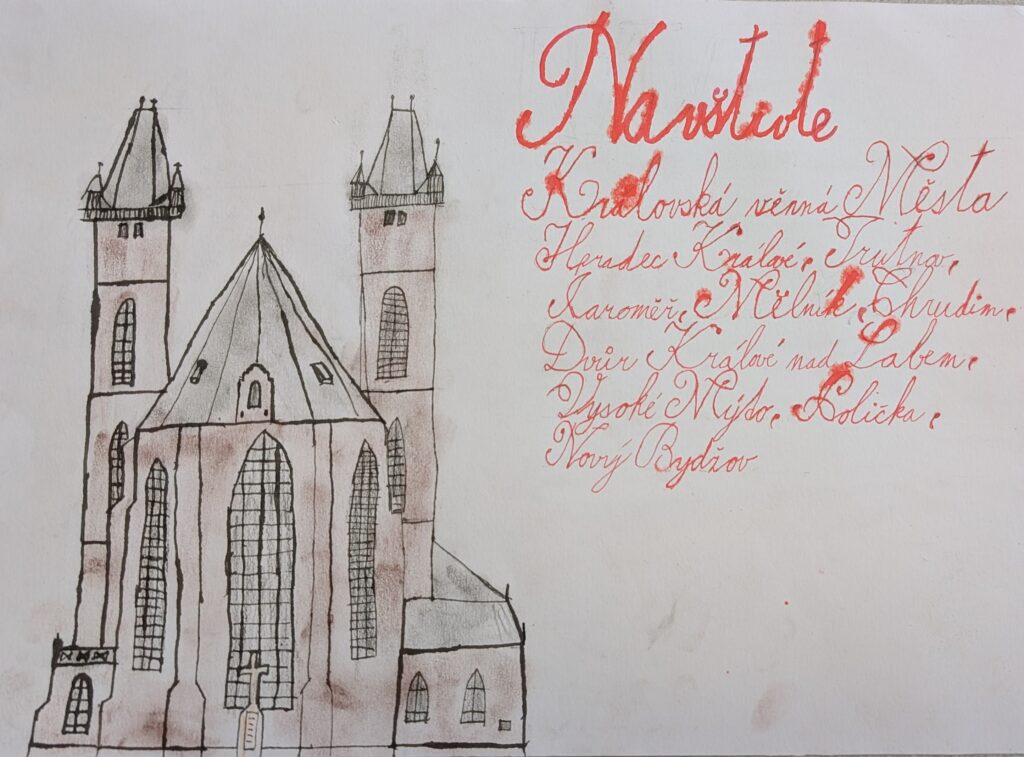 Navštivte
Královská věnná Města
Hradec Králové, Trutnov,
Jaroměř, Mělník, Chrudim,
Dvůr Králové nad Labem,
Vysoké Mýto, Polička,
Nový Bydžov